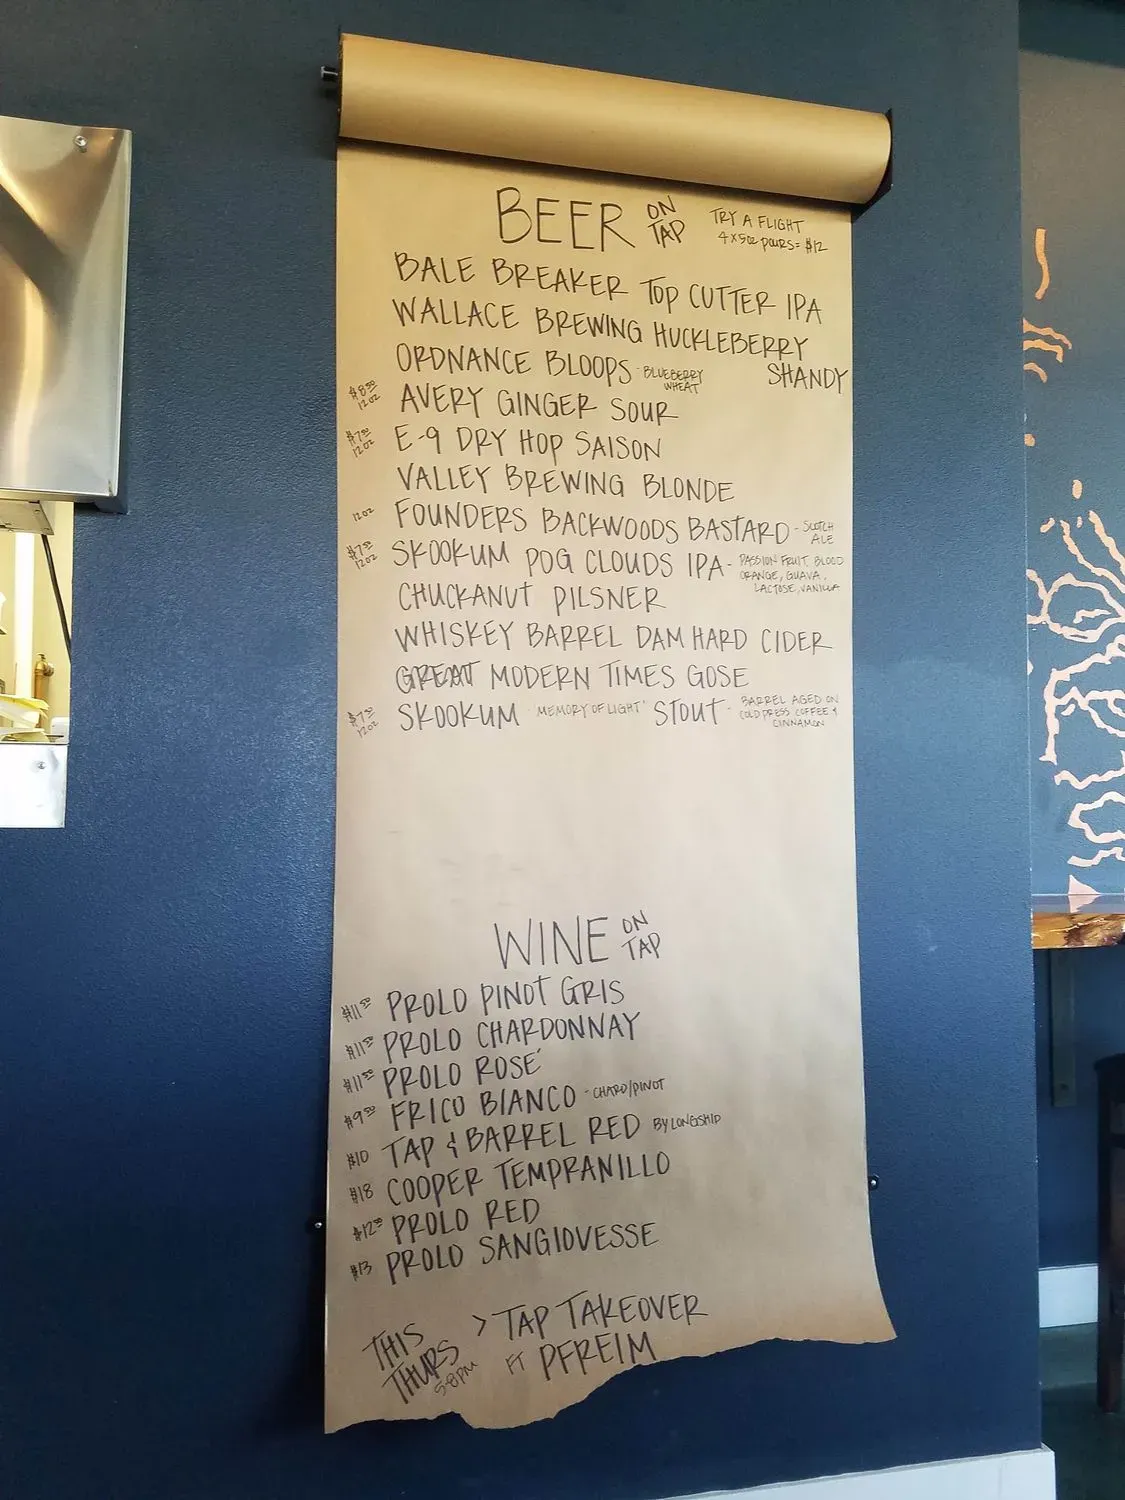 BEER ON TAP
TRY A FLIGHT
4 x 5oz POURS = $12
BALE BREAKER TOP CUTTER IPA
WALLACE BREWING HUCKLEBERRY SHANDY
ORDNANCE BLOOPS - BLUEBERRY WHEAT
$8.50 12oz AVERY GINGER SOUR
$7.50 12oz E-9 DRY HOP SAISON
VALLEY BREWING BLONDE
12oz FOUNDERS BACKWOODS BASTARD - SCOTCH ALE
$7.50 12oz SKOOKUM POG CLOUDS IPA - PASSION FRUIT, BLOOD ORANGE, GUAVA, LACTOSE, VANILLA
CHUCKANUT PILSNER
WHISKEY BARREL DAM HARD CIDER
GREAT MODERN TIMES GOSE
12oz SKOOKUM "MEMORY OF LIGHT" STOUT - BARREL AGED ON COLD PRESS COFFEE & CINNAMON
WINE ON TAP
$11.50 PROLO PINOT GRIS
$11.50 PROLO CHARDONNAY
$11.50 PROLO ROSÉ
$9.50 FRICO BIANCO - CHARD/PINOT
$10 TAP & BARREL RED BY LONGSHIP
$18 COOPER TEMPRANILLO
$12.50 PROLO RED
$13 PROLO SANGIOVESSE
THIS THURS 5-8PM > TAP TAKEOVER
FT PFREIM